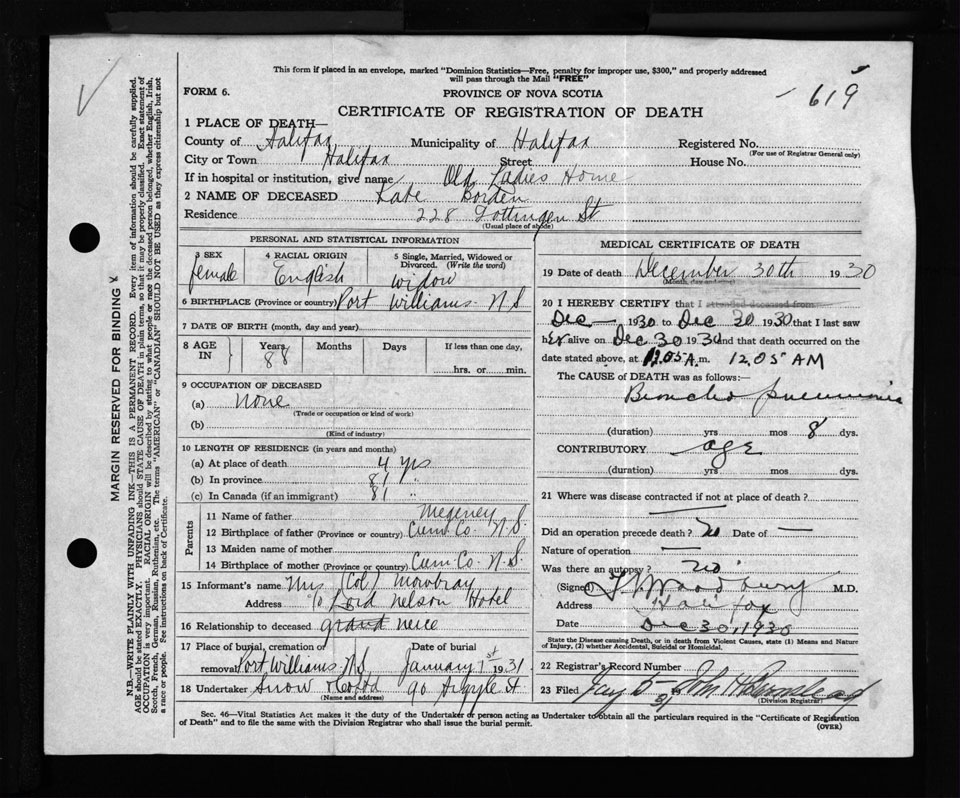 This form if placed in an envelope, marked "Dominion Statistics—Free, penalty for improper use, $300," and properly addressed
will pass through the Mail "FREE"
FORM 6.
PROVINCE OF NOVA SCOTIA
619
CERTIFICATE OF REGISTRATION OF DEATH
1 PLACE OF DEATH—
County of Halifax Municipality of Halifax Registered No.
(For use of Registrar General only)
City or Town Halifax Street House No.
If in hospital or institution, give name Old Ladies Home
2 NAME OF DECEASED Kate Borden
Residence 228 Gottingen St
(Usual place of abode)
PERSONAL AND STATISTICAL INFORMATION
3 SEX 4 RACIAL ORIGIN 5 Single, Married, Widowed or
Divorced. (Write the word)
female English widow
6 BIRTHPLACE (Province or country) Port Williams N.S
7 DATE OF BIRTH (month, day and year)
8 AGE IN Years Months Days If less than one day,
88 hrs. or min.
9 OCCUPATION OF DECEASED
(a) none
(Trade or occupation or kind of work)
(b)
(Kind of industry)
10 LENGTH OF RESIDENCE (in years and months)
(a) At place of death 4 yrs
(b) In province 81 "
(c) In Canada (if an immigrant) 81 "
Parents
11 Name of father Megeney
12 Birthplace of father (Province or country) Cum Co. N.S.
13 Maiden name of mother
14 Birthplace of mother (Province or country) Cum Co. N.S.
15 Informant's name Mrs (Col) Mowbray
Address c/o Lord Nelson Hotel
16 Relationship to deceased grand neice
17 Place of burial, cremation or removal Port Williams N.S Date of burial January 1st 1931
18 Undertaker Snow & Co Ltd 90 Argyle St
(Name and address)
MEDICAL CERTIFICATE OF DEATH
19 Date of death December 30th 1930
(Month, day and year)
20 I HEREBY CERTIFY that I attended deceased from
Dec — 1930 to Dec 30 1930 that I last saw
her alive on Dec 30 1930 and that death occurred on the
date stated above, at 12.05 A.m. 12.05 AM
The CAUSE OF DEATH was as follows:—
Broncho pneumonia
(duration) yrs mos 8 dys.
CONTRIBUTORY age
(duration) yrs mos dys.
21 Where was disease contracted if not at place of death?
Did an operation precede death? no Date of —
Nature of operation —
Was there an autopsy? no
(Signed) Woodbury M.D.
Address Halifax
Date Dec 30, 1930
State the Disease causing Death, or in death from Violent causes, state (1) Means and Nature
of Injury, (2) whether Accidental, Suicidal or Homicidal.
22 Registrar's Record Number
23 Filed Jany 5 31 John H
(Division Registrar)
Sec. 46—Vital Statistics Act makes it the duty of the Undertaker or person acting as Undertaker to obtain all the particulars required in the "Certificate of Registration
of Death" and to file the same with the Division Registrar who shall issue the burial permit.
(OVER)
MARGIN RESERVED FOR BINDING
N.B.—WRITE PLAINLY WITH UNFADING INK—THIS IS A PERMANENT RECORD. Every item of information should be carefully supplied.
AGE should be stated EXACTLY. PHYSICIANS should STATE CAUSE OF DEATH in plain terms, so that it may be properly classified. Exact statement of
OCCUPATION is very important. RACIAL ORIGIN will be described by stating to what people or race the deceased person belonged, whether English, Irish,
Scotch, French, German, Russian, Ruthenian, etc. The terms "AMERICAN" or "CANADIAN" SHOULD NOT BE USED as they express citizenship but not
a race or people. See instructions on back of Certificate.